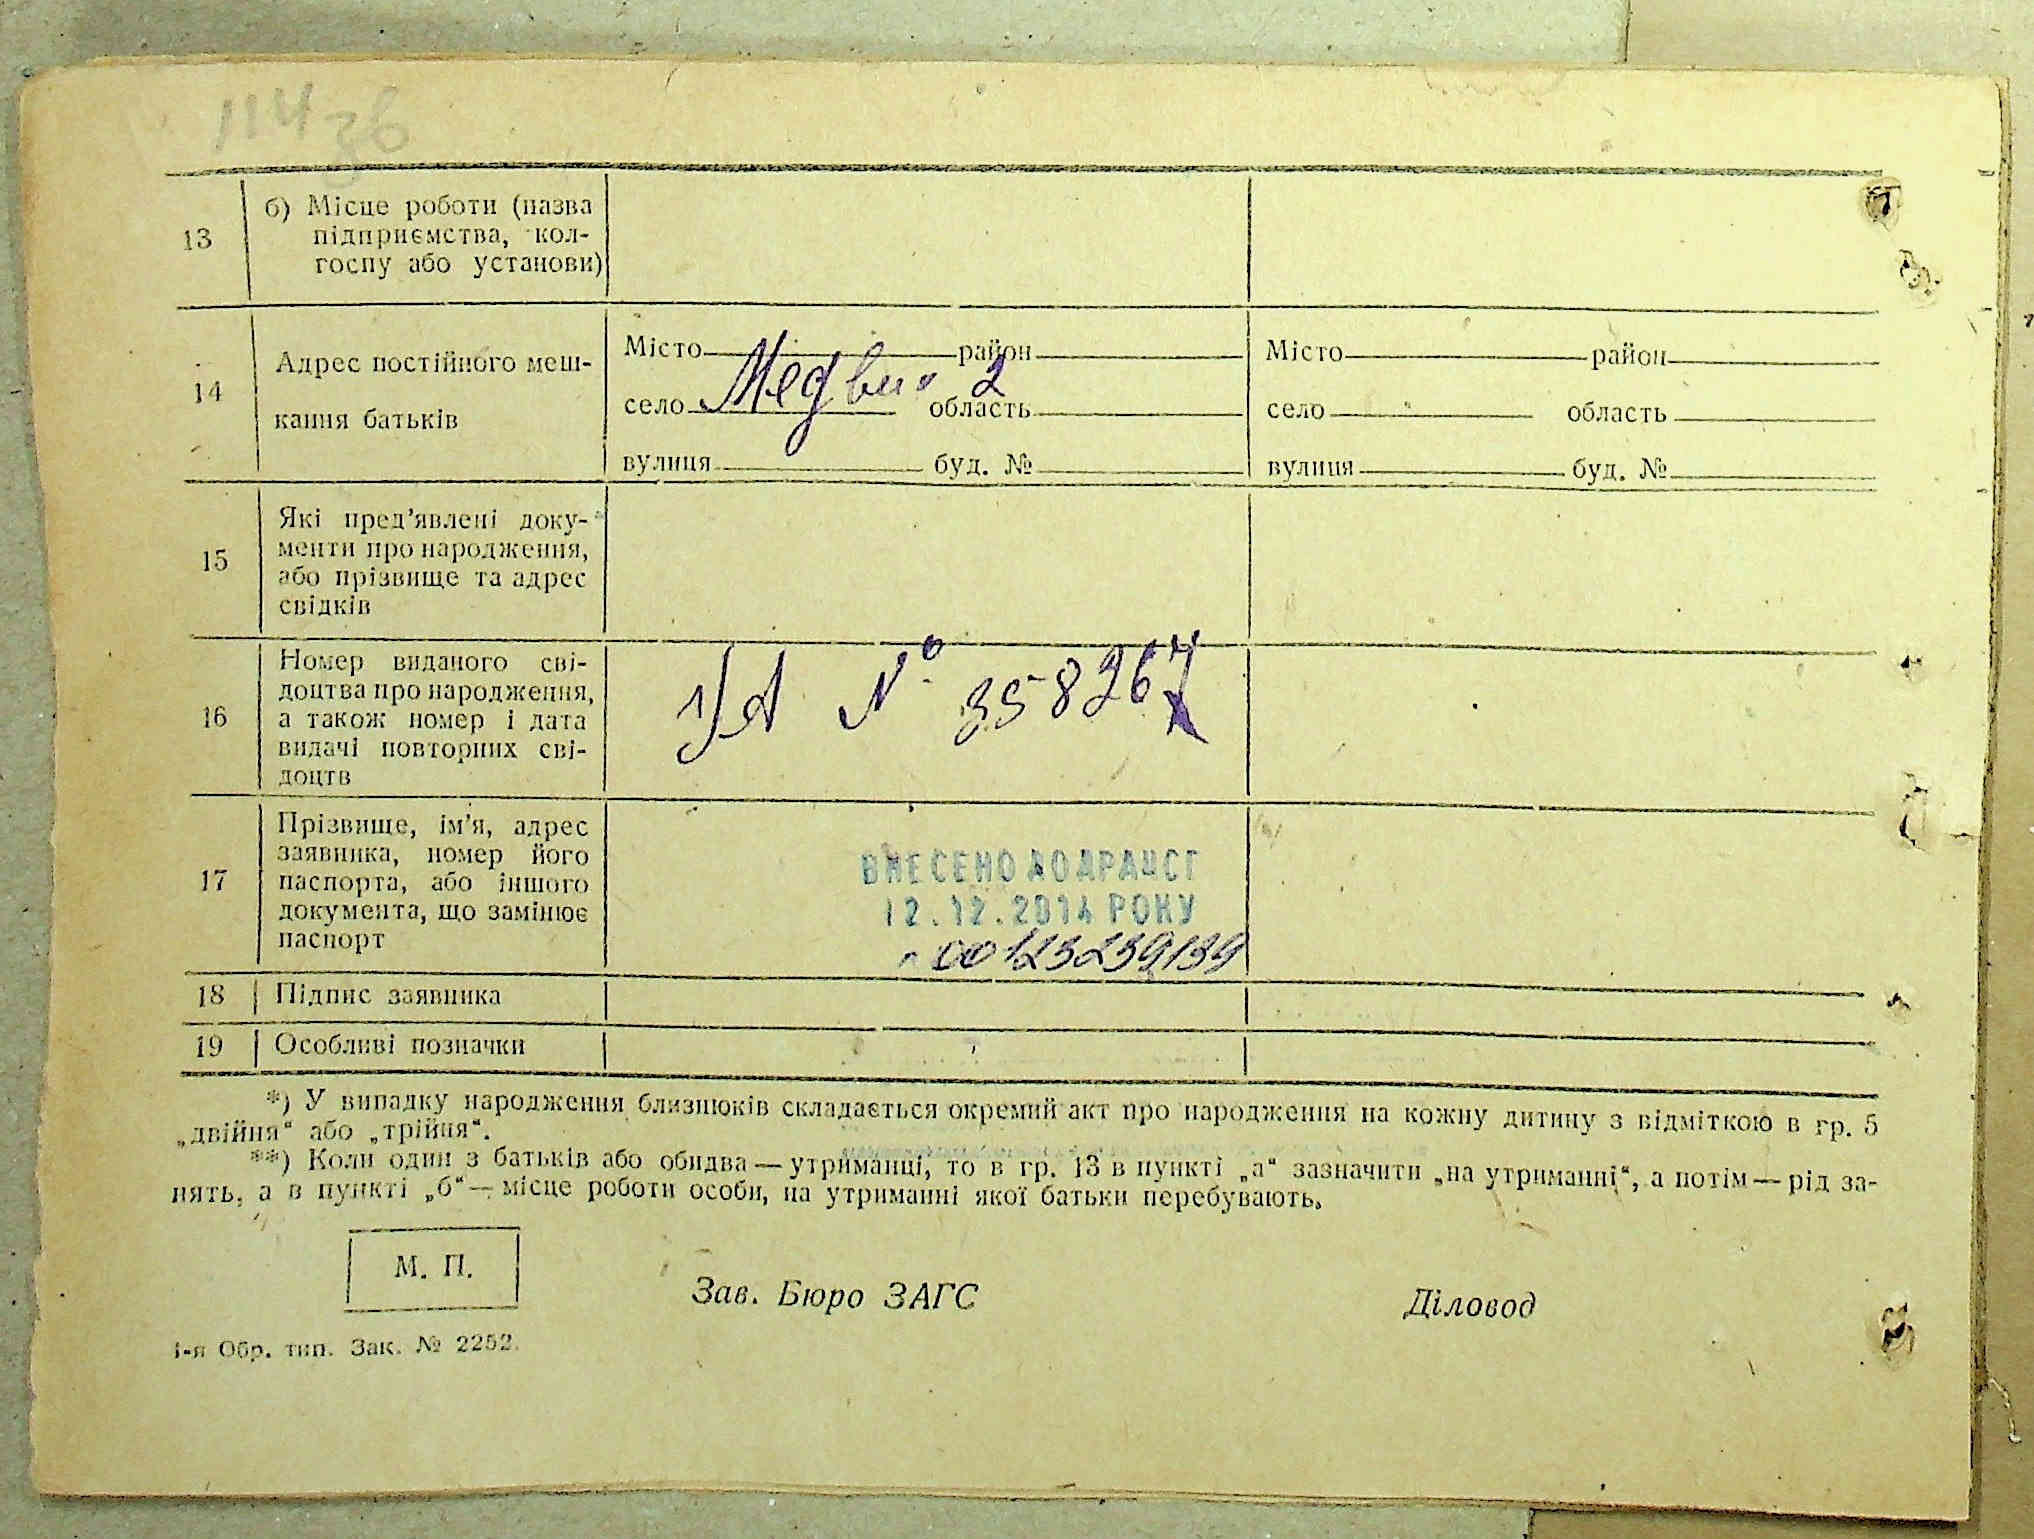 114 зв
13
б) Місце роботи (назва
підприємства, кол-
госпу або установи)
14
Адрес постійного меш-
кання батьків
Місто район
село Медвин 2 область
вулиця буд. №
Місто район
село область
вулиця буд. №
15
Які пред’явлені доку-
менти про народження,
або прізвище та адрес
свідків
16
Номер виданого сві-
доцтва про народження,
а також номер і дата
видачі повторних сві-
доцтв
УА № 358267
17
Прізвище, ім’я, адрес
заявника, номер його
паспорта, або іншого
документа, що замінює
паспорт
ВНЕСЕНО ДО ДРАЦСГ
12.12.2014 РОКУ
00123239139
18
Підпис заявника
19
Особливі позначки
*) У випадку народження близнюків складається окремий акт про народження на кожну дитину з відміткою в гр. 5
„двійня“ або „трійня“.
**) Коли один з батьків або обидва — утриманці, то в гр. 13 в пункті „а“ зазначити „на утриманні“, а потім — рід за-
нять, а в пункті „б“ — місце роботи особи, на утриманні якої батьки перебувають.
М. П.
Зав. Бюро ЗАГС
Діловод
1-я Обр. тип. Зак. № 2252.